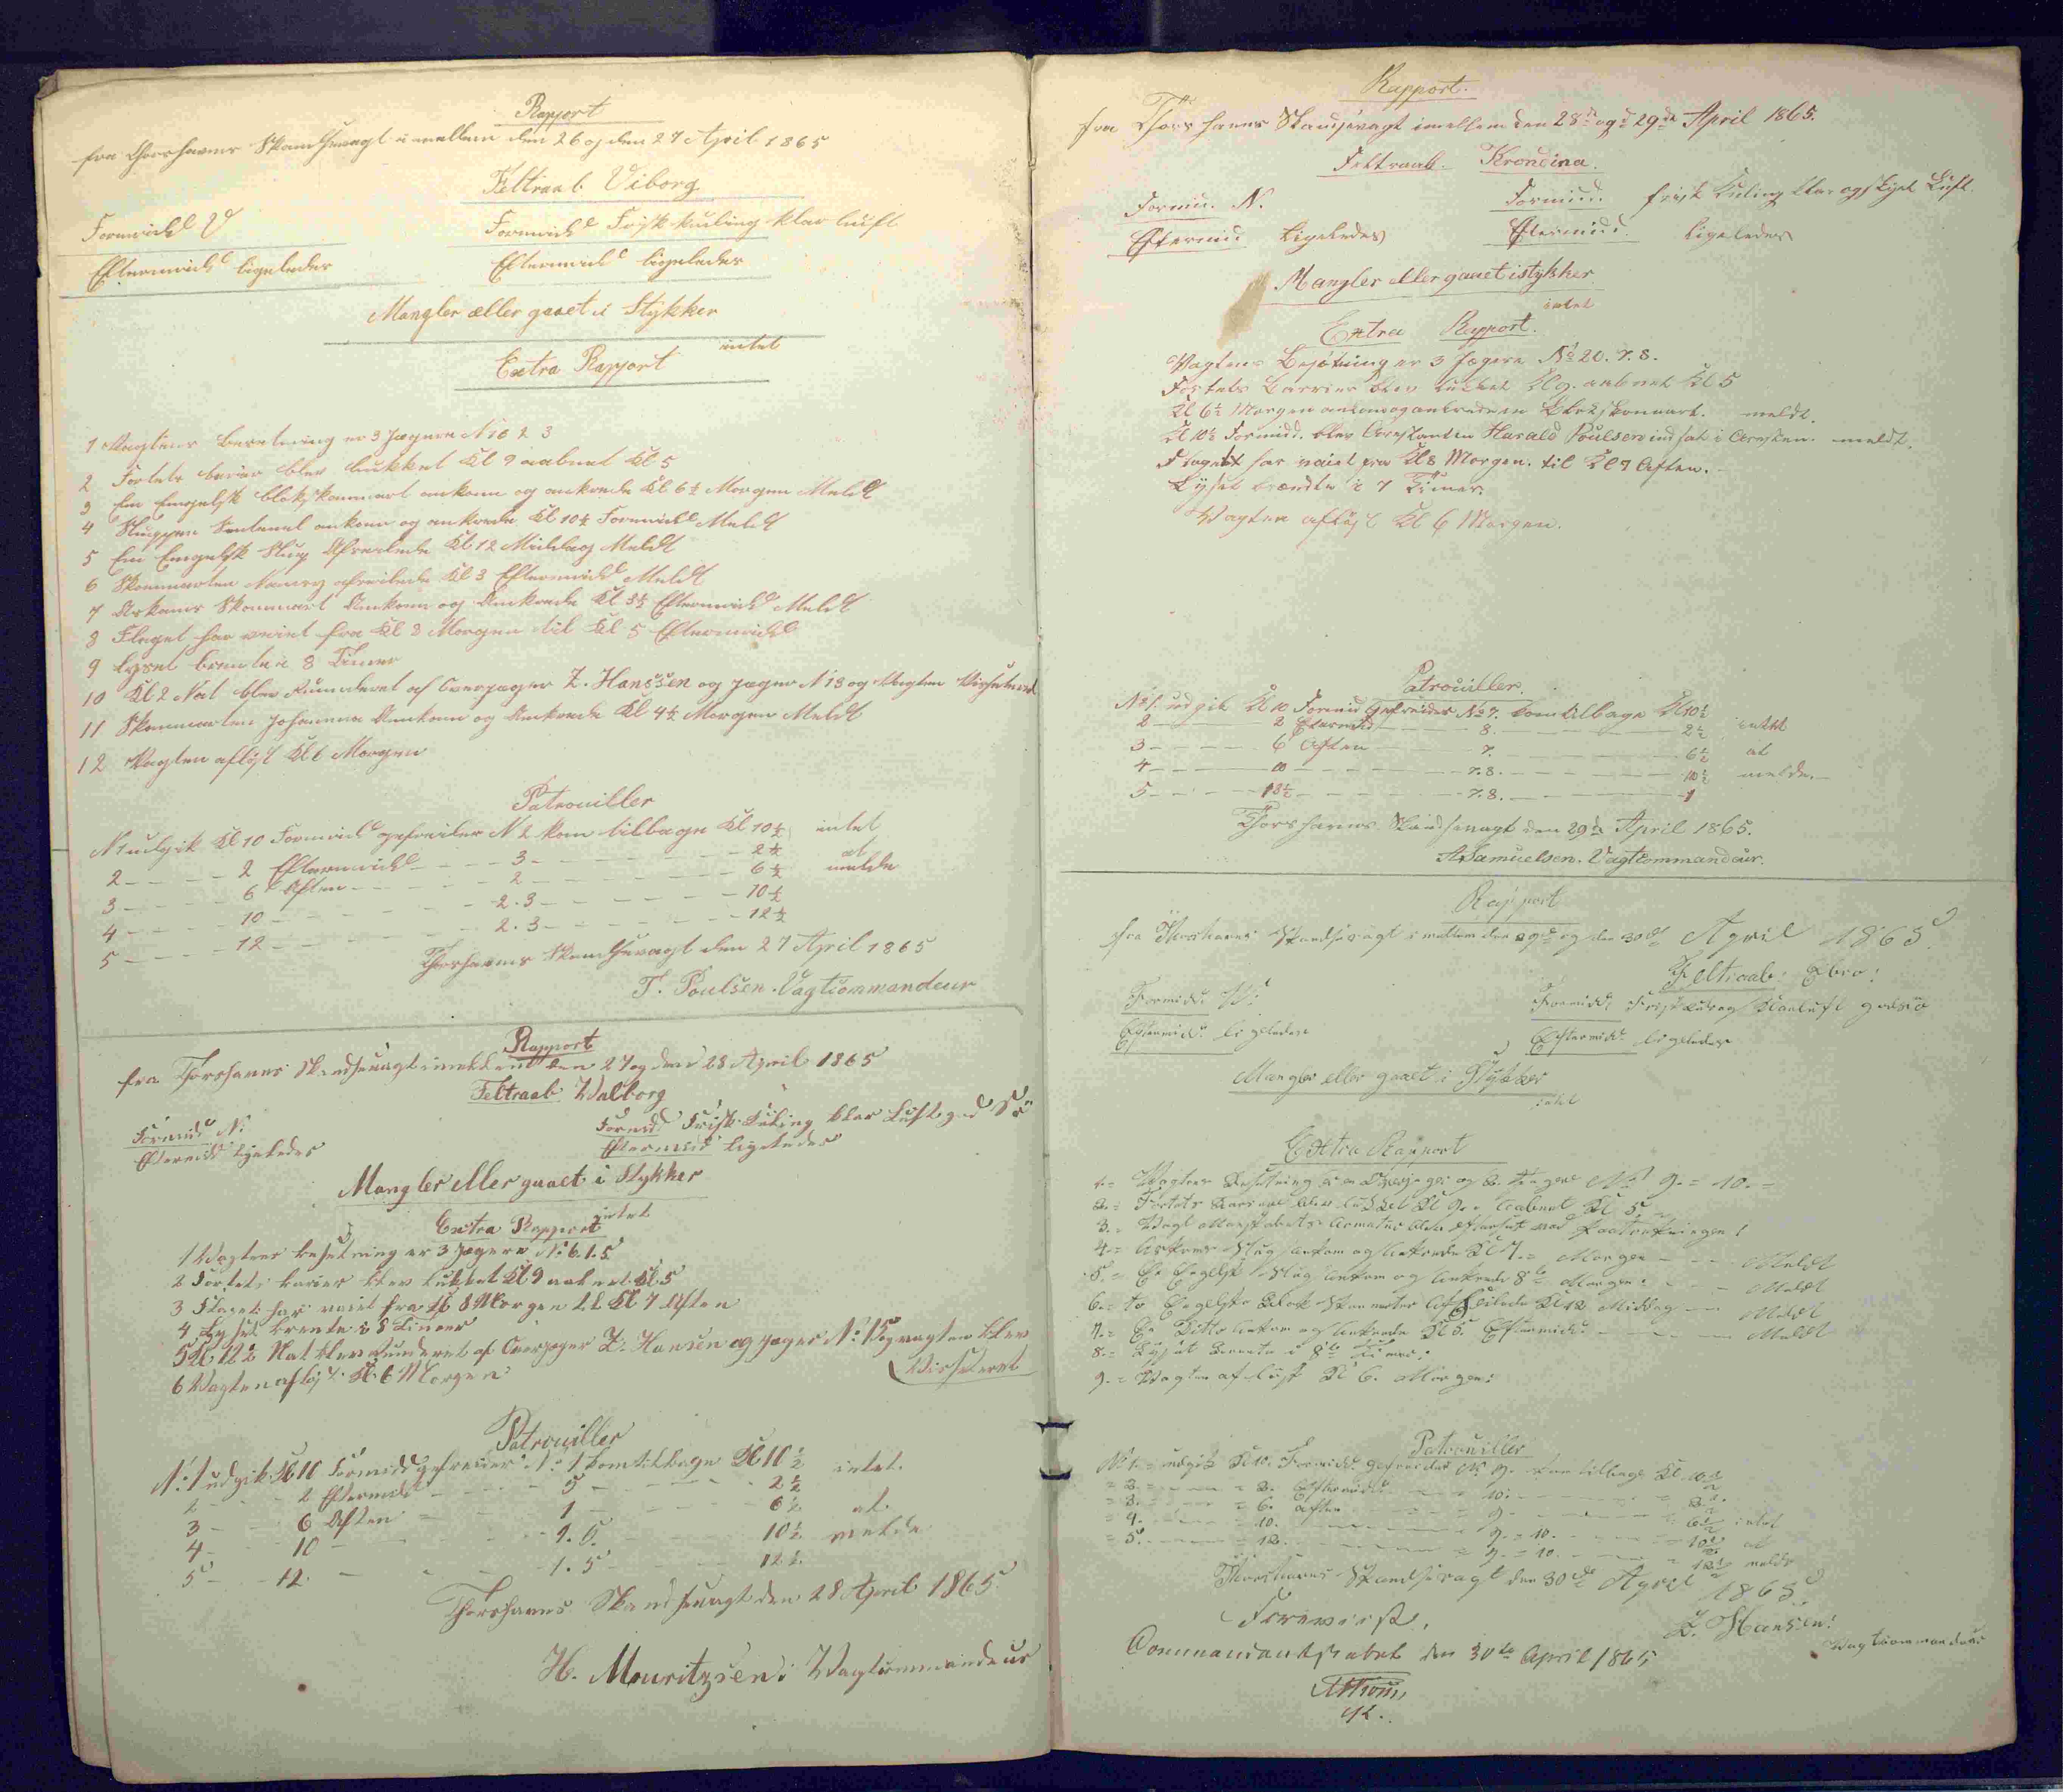 Rapport
fra Thorshavns Skandsevagt imellem den 26 og den 27 April 1865
Feltraab Viborg
Formidd V
Formidd Frisk kuling klar luft
Eftermidd ligeledes
Eftermidd ligeledes
Mangler eller gaaet i Stykker
intet
Extra Rapport
1 Vagtens besetning er 3 Jægere N 2 3
2 Fortets barier blev lukket Kl 9 aabnet Kl 5
3 En Engelsk blokskonnart ankom og ankrede Kl 6½ Morgen Meldt
4 Sluppen ankom og ankrede Kl 10½ Formidd Meldt
5 En Engelsk Slup Afseilede Kl 12 Middag Meldt
6 Skonnarten afseilede Kl 3 Eftermidd Meldt
7 Askams Skonnart Ankom og Ankrede Kl 3½ Eftermidd Meldt
8 Flaget har veiet fra Kl 8 Morgen til Kl 5 Eftermidd
9 Lyset brente i 8 Timer
10 Kl 2 Nat blev Runderet af Overjæger Z. Hanssen og Jæger N 18 og Vagten Visiteret
11 Skonnarten Johanna Ankom og Ankrede Kl 4½ Morgen Meldt
12 Vagten afløst Kl 6 Morgen
Patrouiller
N 1 udgik Kl 10 Formidd gefreider N 2 kom tilbage Kl 10½ intet
2 - - - 2 Eftermidd - - - 3 - - - 2½ at
3 - - - 6 Aften - - - 2 - - - 6½ melde
4 - - - 10 - - - 2.3 - - - 10½
5 - - - 12 - - - 2.3 - - - 12½
Thorshavns Skandsevagt den 27 April 1865
T. Poulsen. Vagtcommandeur
Rapport
fra Thorshavns Skandsevagt imellem den 27 og den 28 April 1865
Feltraab: Valborg
Formidd N:
Formidd Frisk Kuling klar Luft god Sø
Eftermidd ligeledes
Eftermidd ligeledes
Mangler eller gaaet i Stykker
intet
Extra Rapport
1 Vagtens besetning er 3 Jægere N: 6. 1. 5
2 Fortets barier blev lukket Kl 9 aabnet Kl 5
3 Flaget har veiet fra Kl 8 Morgen til Kl 7 Aften
4 Lyset brente i 8 Timer
5 Kl Nat blev Runderet af Overjæger Z. Hansen og Jæger N: 15 og vagten blev
Visiteret
6 Vagten afløst Kl 6 Morgen
Patrouiller
N: 1 udgik Kl 10 Formidd gefreider N: 1 kom tilbage Kl 10½ intet.
2 - - 2 Eftermidd - - - 5 - - - 2½
3 - - 6 Aften - - - 1 - - - 6½ at
4 - - 10 - - - 1.5. - - - 10½ melde
5 - - 12 - - - 1.5 - - - 12½
Thorshavns Skandsevagt den 28 April 1865
H. Mouritzsen: Vagtcommandeur
Rapport.
fra Thorshavns Skandsevagt imellem den 28de og d 29de April 1865.
Feltraab. Krondina.
Formid. N.
Formidd. frisk Kuling klar og skyet Luft.
Eftermid: Ligeledes
Eftermidd. Ligeledes
Mangler eller gaaet istykker
intet
Extra Rapport.
Vagtens Besætning er 3 Jægere No 20. 7. 8.
Fortets Barrier blev lukket Kl 9. aabnet Kl 5
Kl 6½ Morgen ankom og ankrede en Blokskonnart. meldt.
Kl 10½ Formidd. blev Arrestanten Harald Poulsen indsat i Arresten. meldt.
Flaget har vaiet fra Kl 8 Morgen. til Kl 7 Aften.
Lyset brændte i 7 Timer.
Vagten afløst Kl 6 Morgen.
Patrouiller.
No 1. udgik Kl 10 Formid gefreider No 7. kom tilbage Kl 10½ intet
2 - - - 2 Eftermid - - - 8. - - - 2½
3 - - - 6 Aften - - - 7. - - - 6½ at
4 - - - 10 - - - 7.8. - - - 10½ melde.
5 - - - 12½ - - - 7.8. - - - 1
Thorshavns Skandsevagt den 29de April 1865.
A Samuelsen. Vagtcommandeur.
Rapport
fra Thorshavns Skandsevagt imellem den 29de og den 30de April 1865
Feltraab: Ebro:
Formidd: N:
Formidd: Frisk Klarluft god Sø
Eftermidd: ligeledes
Eftermidd: ligeledes
Mangler eller gaaet i Stykker
intet
Extra Rapport
1.= Vagtens Besetning er en Overjæger og 2. Jægere No 9. = 10. =
2.= Fortets Barriere blev lukket Kl 9. = Aabnet Kl 5 =
3.= Vagt Mandskabets Armatur blev efterset ved
4.= Askams Slup Ankom og Ankrede Kl 7. = Morgen - - - Meldt
5.= En Engelsk Slup Ankom og Ankrede 8te Morgen: - - - Meldt
6.= to Engelske Blok Skonnarter Afseilede Kl 12 Middag - - Meldt
7.= En Ditto Ankom og Ankrede Kl 5. Eftermidd: - - - Meldt
8.= Lyset brente i 8te Timer:
9.= Vagten afløst Kl 6. Morgen:
Patrouiller
No 1.= udgik Kl 10. Formidd: gefreider No 9. kom tilbage Kl 10½
= 2. - - = 2. Eftermidd: - - = 10. - - = 2½.
= 3. - - = 6. Aften - - = 9. - - = 6½ intet
= 4. - - = 10. - - = 9. = 10. - - = 10½ at
= 5. - - = 12. - - = 9. = 10. - - = 12½ melde
Thorshavns Skandsevagt den 30de April 1865
Z. Hansen:
Vagtcommandeur
Foreviist,
Commandantskabet den 30te April 1865